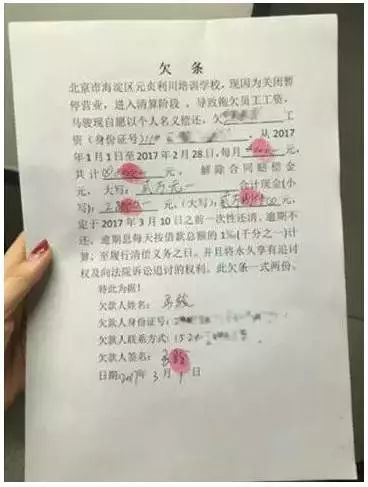 欠 条
北京市海淀区元贞利川培训学校，现因为关闭暂
停营业，进入清算阶段，导致拖欠员工工资，
马骏现自愿以个人名义偿还，欠 工
资（身份证号211 ，从2017
年1月1日至2017年2月28日，每月 元，
共计 元， 解除合同赔偿金
元，大写： 合计现金(小
写)： 元，（大写）： 元，
定于2017年3月10日之前一次性还清，逾期不
还，逾期息每天按借款总额的1‰(千分之一)计
算，至履行清偿义务之日。并且将永久享有追讨
权及向法院诉讼追讨的权利。此欠条一式两份。
特此为据！
欠款人姓名：马骏
欠款人身份证号：
欠款人联系方式：152
欠款人签名：
日期：2017年 3 月 1 日